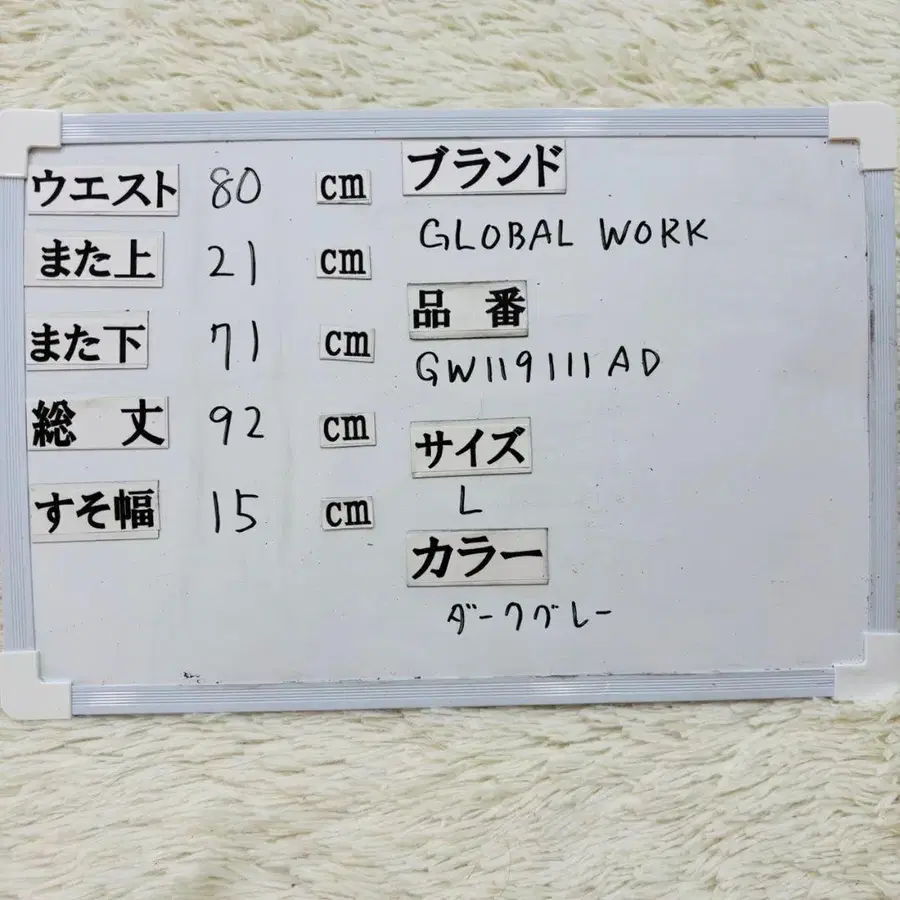 ウエスト 80 cm
また上 21 cm
また下 71 cm
総丈 92 cm
すそ幅 15 cm
ブランド
GLOBAL WORK
品番
GW119111AD
サイズ
L
カラー
ダークグレー